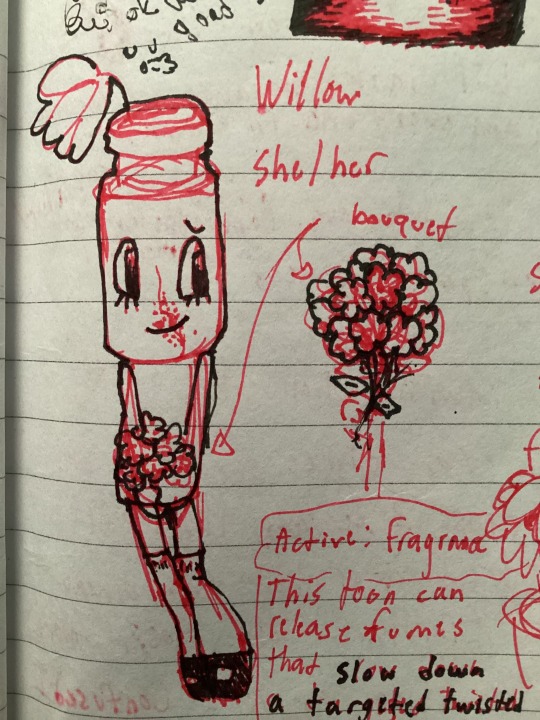 But ok
goes
Willow
She/her
bouquet
Active: Fragrnna
This toon can
release fumes
that slow down
a targeted twisted